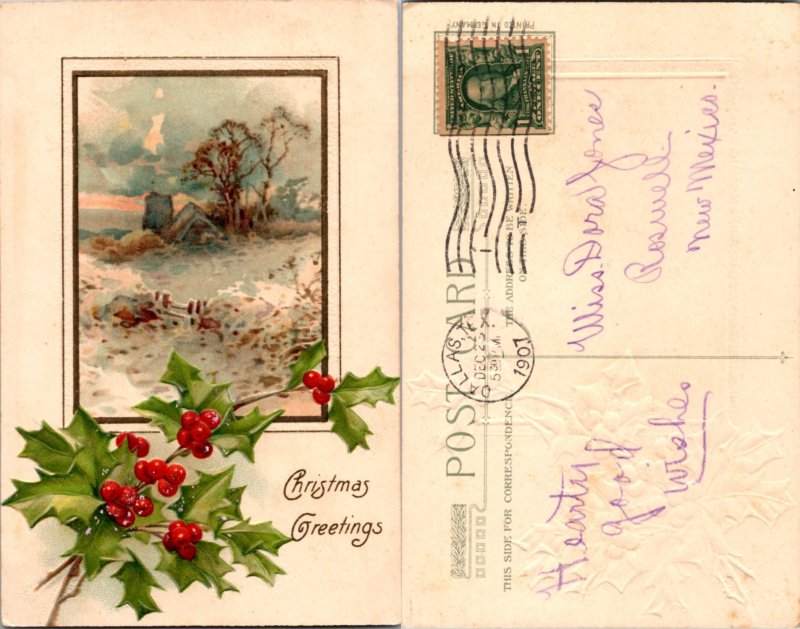 Christmas
Greetings
PRINTED IN GERMANY
ONE CENT
POST CARD
THIS SIDE FOR CORRESPONDENCE
THE ADDRESS BE WRITTEN
ON SIDE.
LLAS,
DEC 23
530 PM
1907
Miss. Dora Jones
Roswell
New Mexico.
Hearty
good
wishes